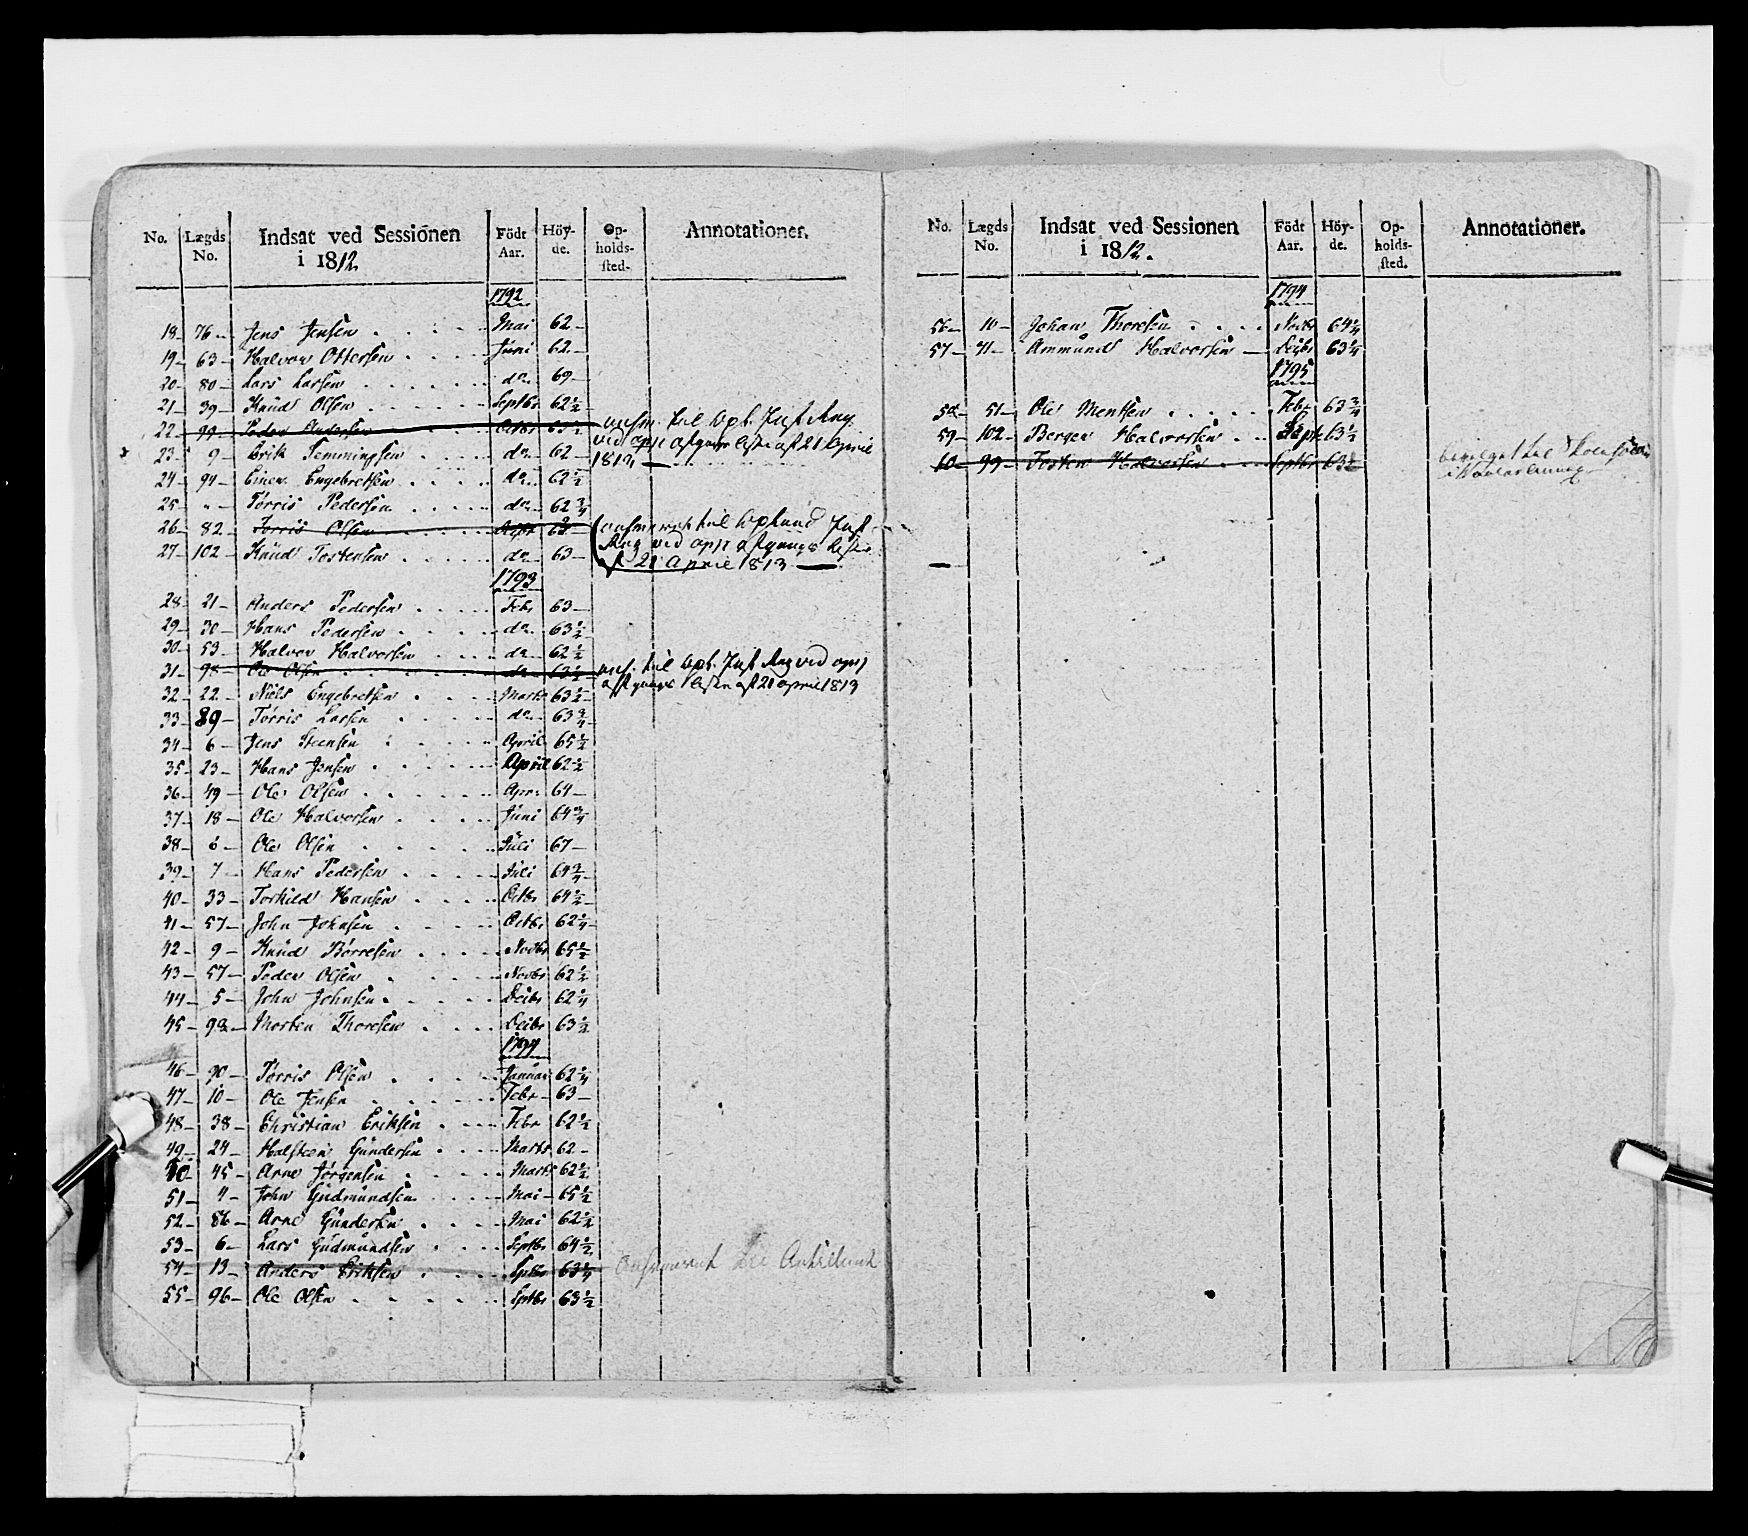 No. Lægds No. Indsat ved Sessionen i 1812. Födt Aar. Höy-de. Op-holds-sted. Annotationer.
1792
18 76 Jens Jensen Mai 62
19 63 Halvor Ottersen Juni 62
20 80 Lars Larsen do 69
21 39 Knud Olsen Septbr 62½
22 99 Peder Andersen Octbr 63½ til Opl. Inf. Reg. ved afgangs liste af 21 April 1813
23 9 Erik Semmingsen do 62
24 94 Einer Engebretsen do 62½
25 " Torris Pedersen do 62¾
26 82 Torris Olsen til Opland Inf. Reg ved afgangs Listen af 21 April 1813
27 102 Knud Tostensen do 63
1793
28 21 Anders Pedersen Febr 63
29 30 Hans Pedersen do 63½
30 53 Halvor Halvorsen do 62½
31 98 Ole Olsen do 63½ til Opl. Inf. Reg ved afgangs listen af 21 april 1813
32 22 Niels Engebretsen Marts 63½
33 89 Torris Larsen do 63¾
34 6 Jens Steensen April 65½
35 23 Hans Jensen April 62½
36 49 Ole Olsen Apr. 64
37 18 Ole Halvorsen Juni 64¾
38 6 Ole Olsen Juli 67
39 7 Hans Pedersen Juli 64¾
40 33 Torkild Hansen Octbr 64½
41 57 John Johnsen Octbr 62¼
42 9 Knud Börresen Novbr 65½
43 57 Peder Olsen Novbr 62½
44 5 John Johnsen Decbr 62¼
45 98 Morten Thoresen Decbr 63½
1794
46 90 Torris Olsen Januar 62¼
47 10 Ole Jensen Febr 63
48 38 Christian Eriksen Febr 62½
49 24 Halsteen Gundersen Marts 62
50 45 Arne Jørgensen Marts 62½
51 4 John Gudmundsen Mai 65½
52 86 Arne Gundersen Mai 62½
53 6 Lars Gudmundsen Septbr 64½
54 13 Anders Eriksen Septbr 63¼
55 96 Ole Olsen Septbr 63½
No. Lægds No. Indsat ved Sessionen i 1812. Födt Aar. Höy-de. Op-holds-sted. Annotationer.
1794
56 10 Johan Thoresen Novbr 64¼
57 41 Ammund Halvorsen Decbr 63¼
1795
58 51 Ole Mentsen Febr 63¾
59 102 Berger Halvorsen Sept 63½
60 99 Tosten Halvorsen Septbr 63½